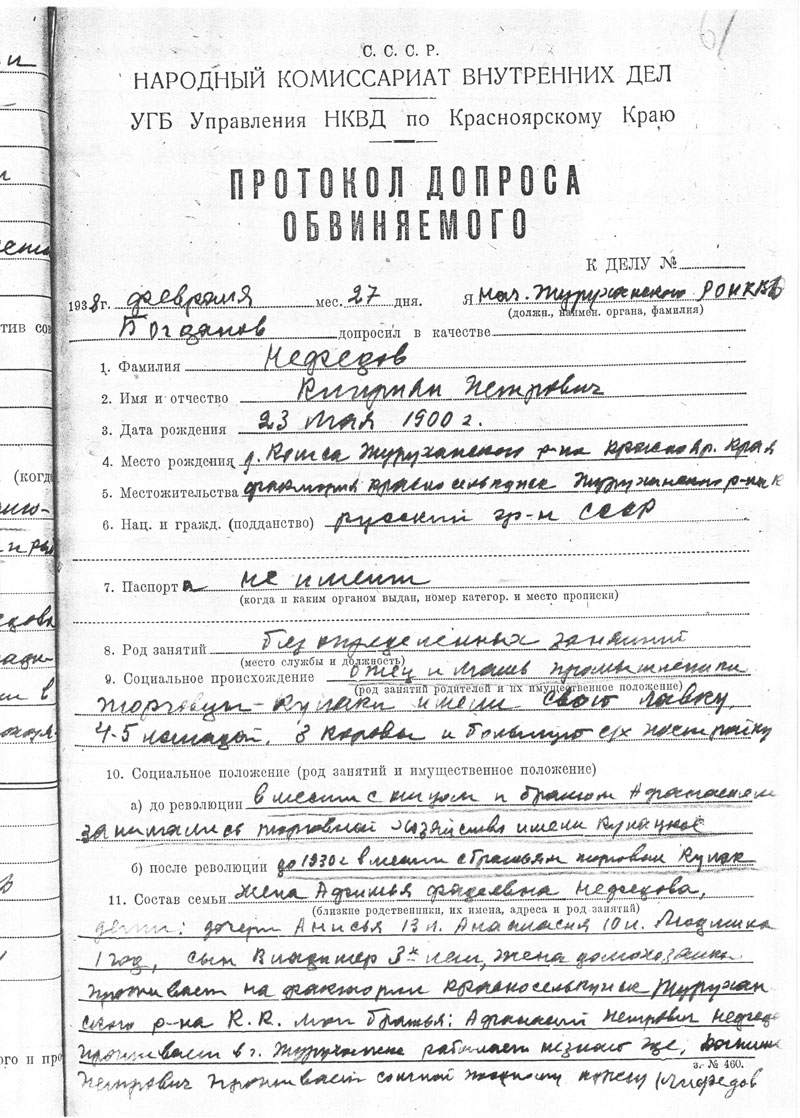 61
С. С. С. Р.
НАРОДНЫЙ КОМИССАРИАТ ВНУТРЕННИХ ДЕЛ
УГБ Управления НКВД по Красноярскому Краю
ПРОТОКОЛ ДОПРОСА
ОБВИНЯЕМОГО
К ДЕЛУ №
1938 г. февраля мес. 27 дня. Я нач. Туруханского РОНКВД
(должн., наимен. органа, фамилия)
Богданов допросил в качестве
1. Фамилия Нефедов
2. Имя и отчество Киприан Петрович
3. Дата рождения 23 мая 1900 г.
4. Место рождения д. Туруханского р-на Краснояр. края
5. Местожительства фактория Красноселькупск Туруханского р-на К
6. Нац. и гражд. (подданство) русский гр-н СССР
7. Паспорт а не имеет
(когда и каким органом выдан, номер категор. и место прописки)
8. Род занятий без определенных занятий
(место службы и должность)
9. Социальное происхождение отец и мать
(род занятий родителей и их имущественное положение)
торговцы-кулаки имели свою лавку,
4-5 лошадей, 3 коровы и большую с/х постройку
10. Социальное положение (род занятий и имущественное положение)
а) до революции вместе с отцом и братом Афанасием
занимались торговлей хозяйство имели кулацкое
б) после революции до 1930 г вместе с братьям торговал кулак
11. Состав семьи жена Нефедова,
(близкие родственники, их имена, адреса и род занятий)
дети: дочери Анисья 13 л. Анастасия 10 л. Людмила
1 год, сын Владимер 3х лет, жена домохозяика
проживает на фактории Красноселькупск Турухан
ского р-на К.К. мои братья: Афанасий Петрович Нефедо
проживает в г. Туруханске работает незнаю где,
Петрович проживает
з. № 460.